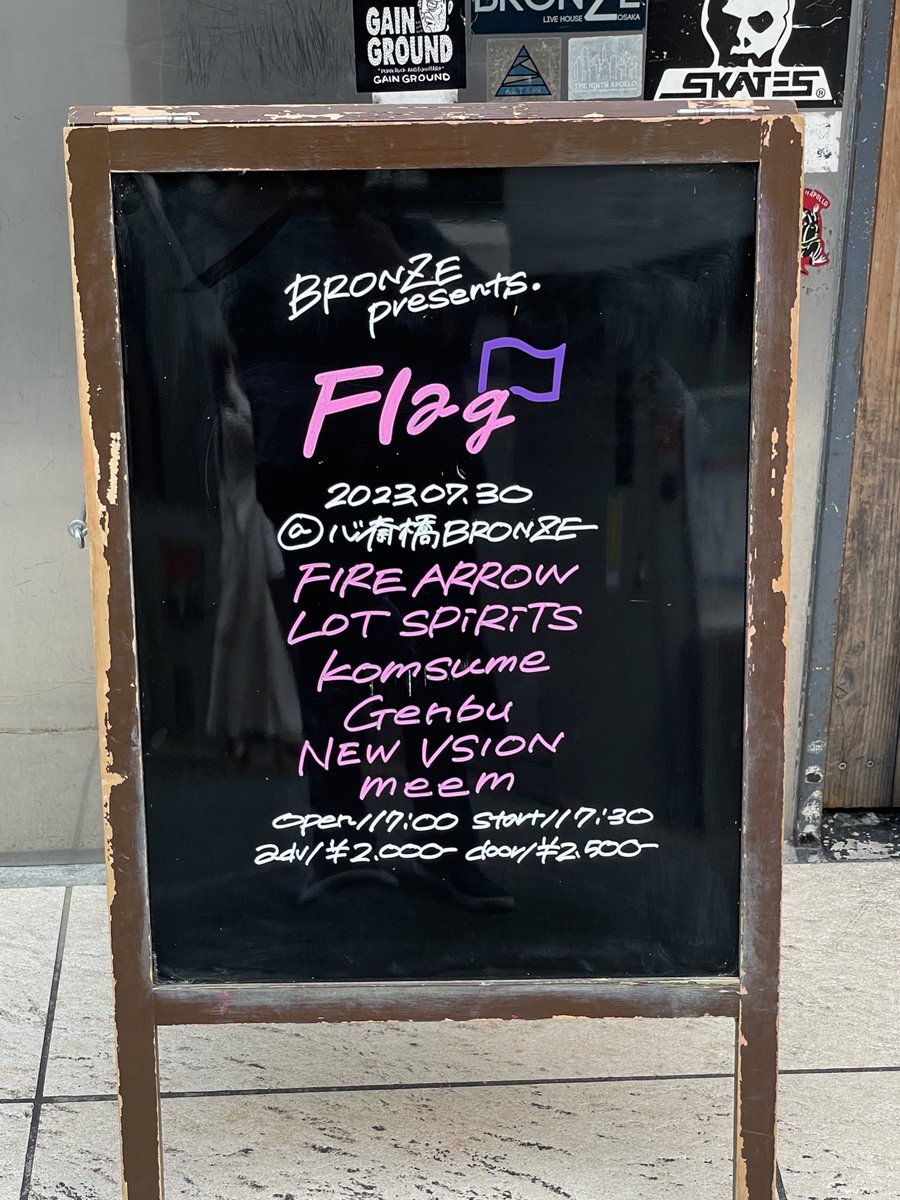 GAIN
GROUND
GAIN GROUND
BRONZE
LIVE HOUSE OSAKA
THE NINTH APOLLO
SKATES
BRONZE
presents.
Flag
2023.07.30
@心斎橋BRONZE
FIRE ARROW
LOT SPiRiTS
komsume
Genbu
NEW VSION
meem
open/17:00 start/17:30
adv/¥2.000- door/¥2.500-